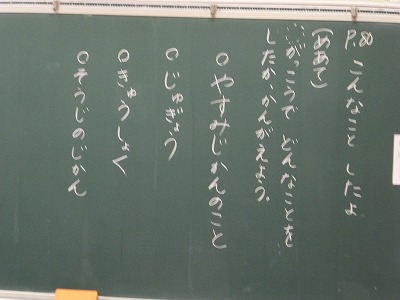 P.80 こんなこと したよ
(めあて)
がっこうで どんなことを
したか、かんがえよう。
○やすみじかんのこと
○じゅぎょう
○きゅうしょく
○そうじのじかん